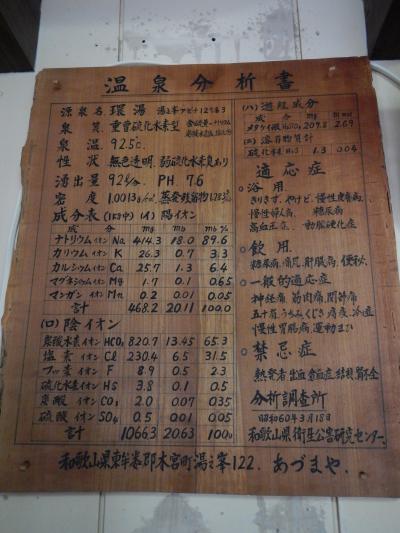 温泉分析書
源泉名 環湯
泉質 重曹硫化水素型
泉温 92.5℃
性状 無色透明、弱硫化水素臭あり
湧出量 92ℓ/分 PH 7.6
密度 1.0013
成分表 (1kg中) (イ) 陽イオン
成分 mg mb mb%
ナトリウムイオン Na 414.3 18.0 89.6
カリウムイオン K 26.3 0.7 3.3
カルシウムイオン Ca 25.7 1.3 6.4
マグネシウムイオン Mg 1.7 0.1 0.65
マンガンイオン Mn 0.2 0.01 0.05
計 468.2 20.11 100.0
(ロ) 陰イオン
炭酸水素イオン HCO₃ 820.7 13.45 65.3
塩素イオン Cl 230.4 6.5 31.5
フッ素イオン F 8.9 0.5 2.3
硫化水素イオン HS 3.8 0.1 0.5
炭酸イオン CO₃ 2.0 0.07 0.35
硫酸イオン SO₄ 0.5 0.01 0.05
計 1066.3 20.63 100.0
(ハ) 遊離成分
成分 mg
メタケイ酸 2.69
(ニ) 溶存物質計
硫化水素 H₂S 1.3 0.04
適応症
○浴用
きりきず、やけど、慢性皮膚病、
慢性婦人病、糖尿病
高血圧症、動脈硬化症
○飲用
糖尿病、痛風、肝臓病、便秘、
○一般的適応症
神経痛 筋肉痛 関節痛
五十肩 うちみ くじき 痔疾 冷症
慢性胃腸病、運動まひ
○禁忌症
分析調査所
昭和60年3月18日
和歌山県衛生公害研究センター
和歌山県東牟婁郡本宮町湯之峯122. あづまや.